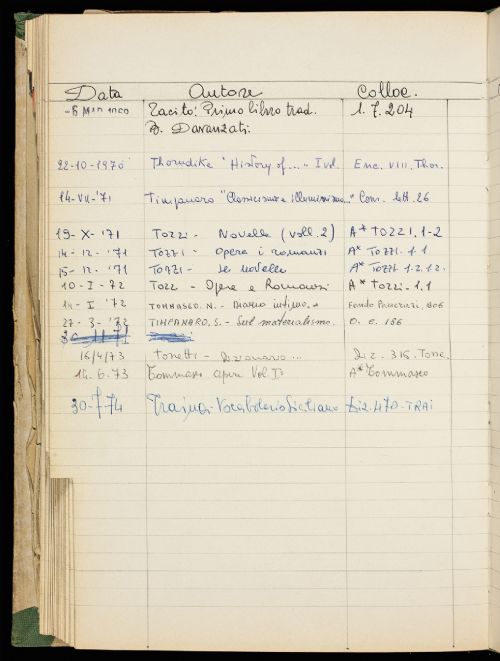 Data Autore Colloc.
Tacito: Primo libro trad. 1. 7. 204
B. Davanzati.
22-10-1970 Thorndike "History of..." I vol. Enc. VIII, Thor.
14-VII-'71 Timpanaro "Classicismo e illuminismo..." Cons. lett. 26
19-X-'71 Tozzi - Novelle (voll. 2) A* TOZZI. 1-2
14-12-'71 Tozzi - Opere i romanzi A* TOZZI. 1.1
15-12-'71 Tozzi - Le novelle A* TOZZI 1.2.1.2.
10-I-72 Tozz - Opere e Romanzi A* Tozzi. 1.1
14-I '72 TOMMASEO. N. - Diario intimo. Fondo Pancrazi, 806
27-3-'72 TIMPANARO. S. - Sul materialismo. O. c. 156
16/4/73 Tonetti - Dizionario ... Diz. 315. Tone.
14.6.73 Tommaseo opere Vol I° A* Tommaseo
30-7-74 Traina: Vocabolario Siciliano Diz. 470-TRAI